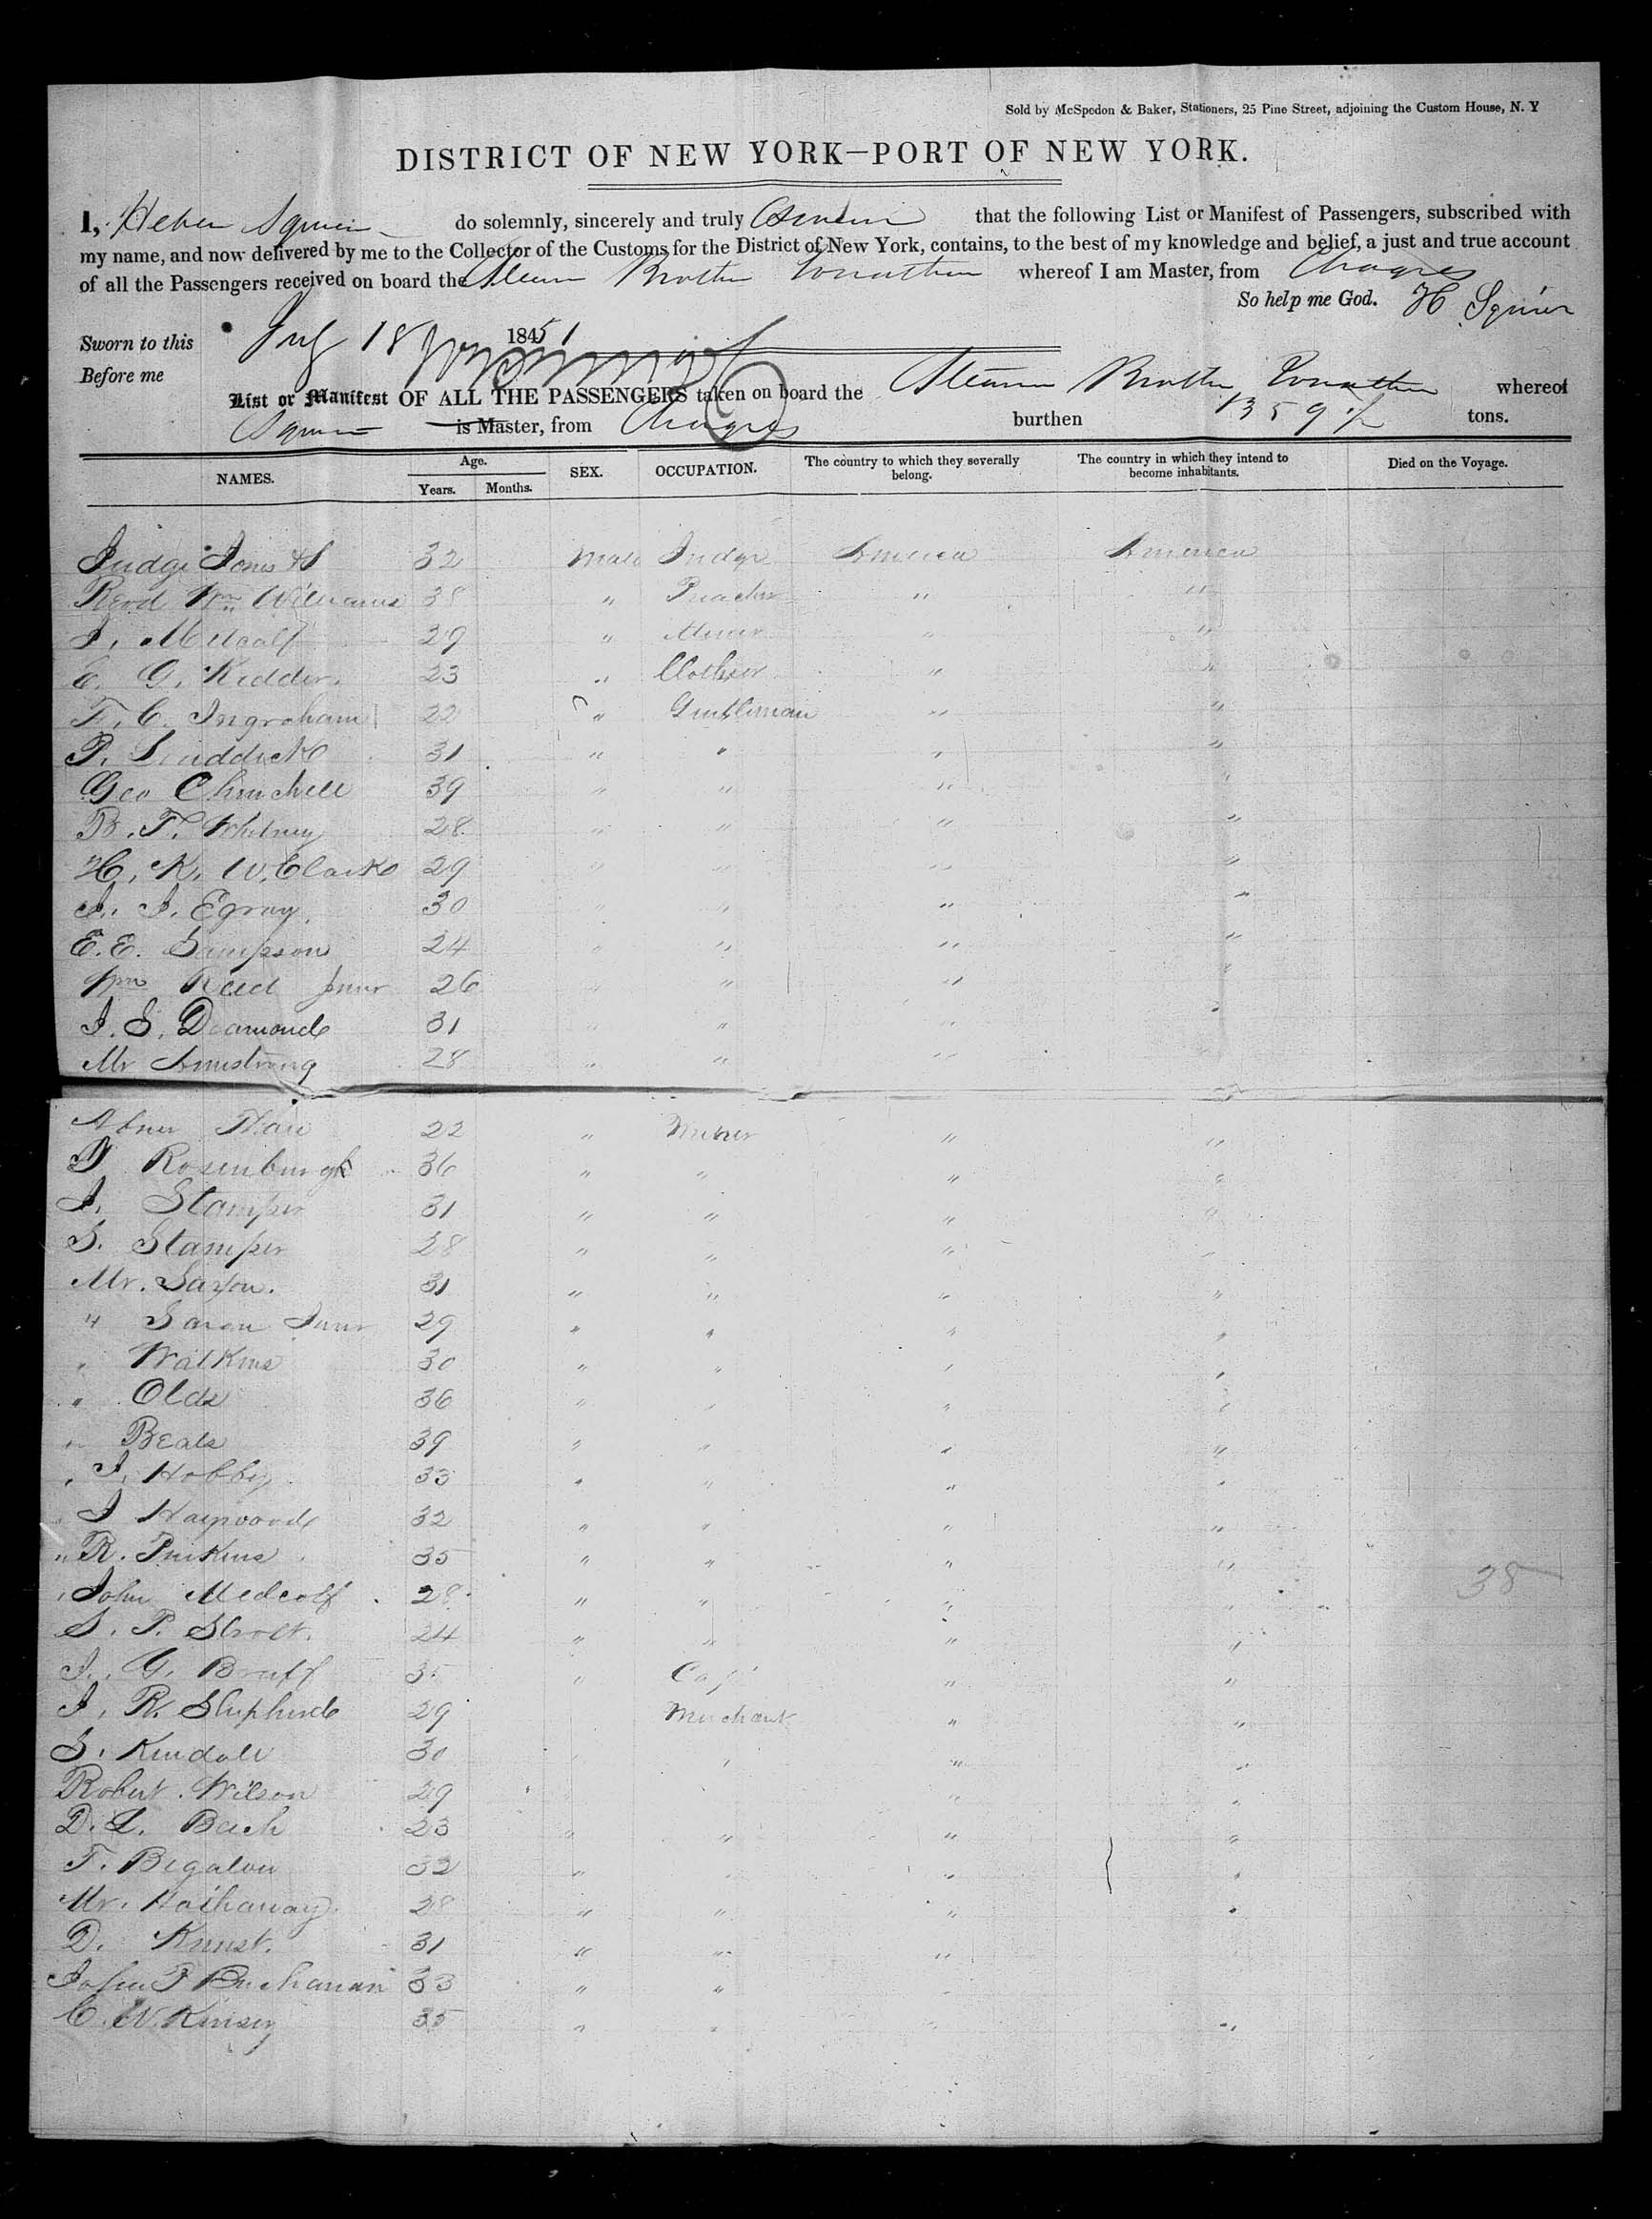 Sold by McSpedon & Baker, Stationers, 25 Pine Street, adjoining the Custom House, N. Y
DISTRICT OF NEW YORK—PORT OF NEW YORK.
I, Heber Squier do solemnly, sincerely and truly Swear that the following List or Manifest of Passengers, subscribed with
my name, and now delivered by me to the Collector of the Customs for the District of New York, contains, to the best of my knowledge and belief, a just and true account
of all the Passengers received on board the Steamer Brother Jonathan whereof I am Master, from Chagres
So help me God. H Squier
Sworn to this July 18 1851
Before me
List or Manifest OF ALL THE PASSENGERS taken on board the Steamer Brother Jonathan whereof
Squier is Master, from Chagres burthen 1359 tons.
NAMES. Age. Years. Months. SEX. OCCUPATION. The country to which they severally belong. The country in which they intend to become inhabitants. Died on the Voyage.
Judge Jones 32 Male Judge America America
Revd Wm Williams 38 " Preacher " "
J. Metcalf 29 " Miner " "
E. G. Kidder. 23 " Clothier " "
F. C. Ingraham 22 " Gentleman " "
P. 31 " " " "
Geo Churchell 39 " " " "
B. F. Whitney 28 " " " "
H. K. W. Clarke 29 " " " "
J. J. Egray. 30 " " " "
E. E. Sampson 24 " " " "
Wm Reed Junr 26 " " " "
J. S. Diamond 31 " " " "
Mr Armstrong 28 " " " "
Abner 22 " Miner " "
Rosenburgh 36 " " " "
J. Stamper 31 " " " "
S. Stamper 28 " " " "
Mr. Saxon. 31 " " " "
" Saxon Junr 29 " " " "
" Watkins 30 " " " "
" Olds 36 " " " "
" Beals 39 " " " "
" J. Hobby 33 " " " "
" J Haywood 32 " " " "
" R. Perkins 35 " " " "
" John Medcalf 28 " " " " 38
S. P. 24 " " " "
J. G. Bruff 35 " Cap " "
J. R. Shepherd 29 Merchant " "
S. Kendall 30 " " "
Robert Wilson 29 " "
D. L. Bach 23 " " " "
F. Bigalow 32 " " " "
Mr. Hathaway. 28 " " " "
D. 31 " " "
John P Buchanan 33 " "
C. W. Kinsey 35 " " " "